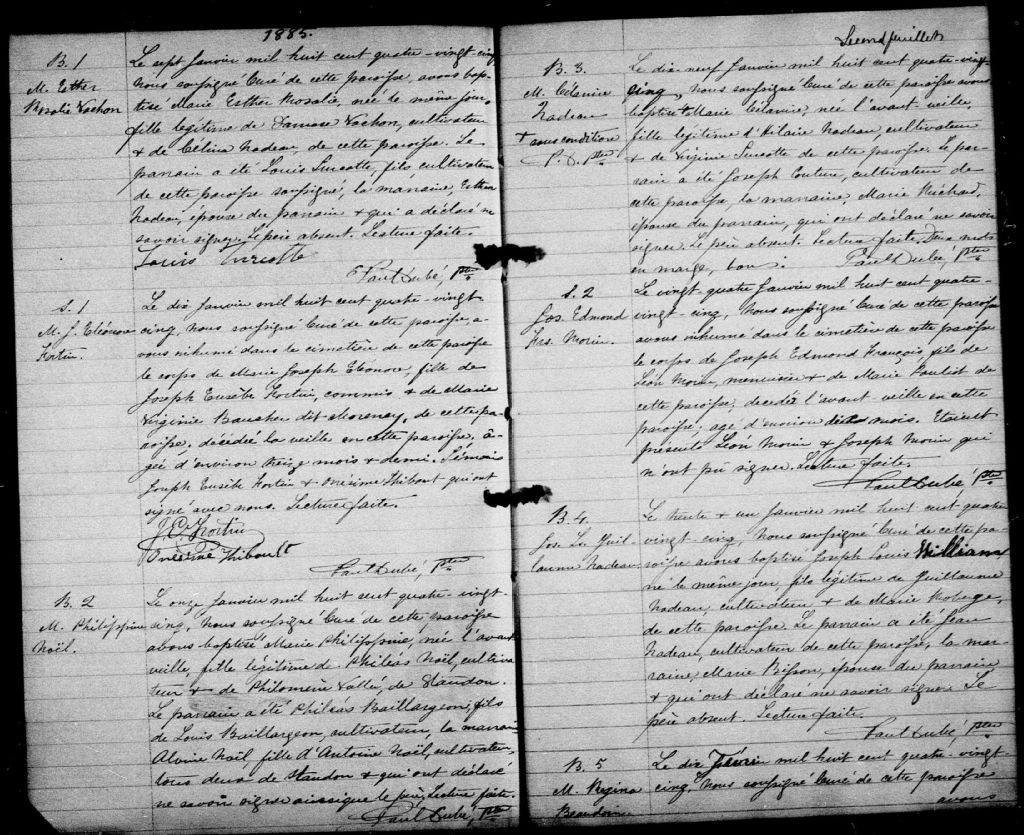 1885.
B. 1
M. Esther
Rosalie Vachon
Le sept Janvier mil huit cent quatre-vingt-cinq
Nous soussigné Curé de cette paroisse, avons bap-
tisé Marie Esther Rosalie, née le même jour,
fille légitime de Damase Vachon, cultivateur
& de Célina Nadeau, de cette paroisse. Le
parrain a été Louis Turcotte, fils cultivateur
de cette paroisse soussigné, la marraine Esther
Nadeau, épouse du parrain & qui a déclaré ne
savoir signer. Le père absent. Lecture faite.
Louis Turcotte
Paul Dubé, Ptre
S. 1
M. J. Eléonore
Fortin.
Le dix Janvier mil huit cent quatre-vingt
cinq, Nous soussigné Curé de cette paroisse, a-
vons inhumé dans le cimetière de cette paroisse
le corps de Marie Joseph Eléonore, fille de
Joseph Eusèbe Fortin, commis & de Marie
Virginie dit de cette pa-
roisse, décédée la veille en cette paroisse, â-
gée d'environ treize mois & demi. Témoins
Joseph Eusèbe Fortin & Onésime Thibault qui ont
signé avec nous. Lecture faite.
J. E. Fortin
Onésime Thibault
Paul Dubé, Ptre
B. 2
M. Philippine
Noël.
Le onze Janvier mil huit cent quatre-vingt-
cinq, Nous soussigné Curé de cette paroisse
avons baptisé Marie Philippine, née l'avant
veille, fille légitime de Philéas Noël, cultiva-
teur & de Philomène Vallée, de Standon.
Le parrain a été Philéas Baillargeon, fils
de Louis Baillargeon, cultivateur, la marraine
Alvine Noël, fille d'Antoine Noël, cultivateur,
tous deux de Standon & qui ont déclaré
ne savoir signer ainsi que le père. Lecture faite.
Paul Dubé, Ptre
Second feuillet
B. 3.
M. Célanire
Nadeau
+ sous condition
P. D. ptre
Le dix-neuf Janvier mil huit cent quatre-vingt
cinq, Nous soussigné Curé de cette paroisse avons
baptisé + Marie Célanire, née l'avant veille,
fille légitime d'Hilaire Nadeau, cultivateur
& de Virginie Turcotte de cette paroisse. Le par-
rain a été Joseph Couture, cultivateur de
cette paroisse, la marraine, Marie
épouse du parrain, qui ont déclaré ne savoir
signer. Le père absent. Lecture faite. Deux mots
en marge, bons. Paul Dubé, Ptre
S. 2
Jos. Edmond
Frs. Morin.
Le vingt-quatre Janvier mil huit cent quatre-
vingt-cinq, Nous soussigné Curé de cette paroisse
avons inhumé dans le cimetière de cette paroisse
le corps de Joseph Edmond François, fils de
Léon Morin, menuisier & de Marie Pouliot de
cette paroisse, décédé l'avant-veille en cette
paroisse, agé d'environ mois. Etaient
présents Léon Morin & Joseph Morin qui
n'ont pu signer. Lecture faite.
Paul Dubé Ptre
B. 4.
Jos. Ls. Guil-
laume Nadeau.
Le trente & un Janvier mil huit cent quatre
vingt-cinq, Nous soussigné Curé de cette pa-
roisse avons baptisé Joseph Louis William
né le même jour, fils légitime de Guillaume
Nadeau, cultivateur & de Marie Roberge,
de cette paroisse. Le parrain a été Jean
Nadeau, cultivateur de cette paroisse, la mar-
raine, Marie Bisson, épouse du parrain
& qui ont déclaré ne savoir signer. Le
père absent. Lecture faite.
Paul Dubé Ptre
B. 5
M. Régina
Beaudoin
Le dix Février mil huit cent quatre-vingt
cinq, Nous soussigné Curé de cette paroisse
avons